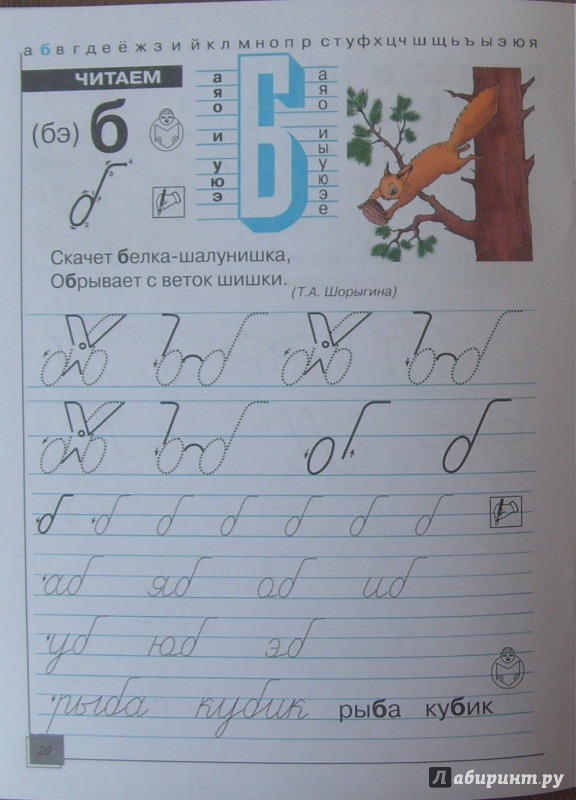 а б в г д е ё ж з и й к л м н о п р с т у ф х ц ч ш щ ъ ь ы э ю я
ЧИТАЕМ
(бэ) б
а
я
о
и
у
ю
э
Б
а
я
о
и
ы
у
ю
э
е
Скачет белка-шалунишка,
Обрывает с веток шишки.
(Т.А. Шорыгина)
б б б б б б б
аб яб об иб
уб юб эб
рыба кубик рыба кубик
20
Лабиринт.ру